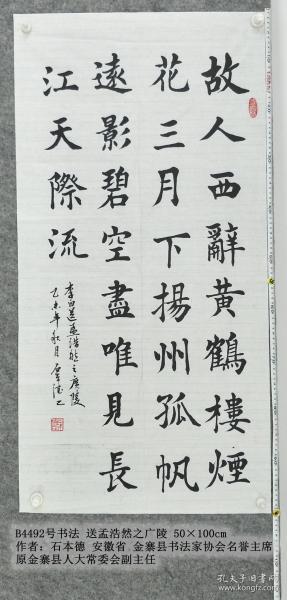 故人西辭黄鶴樓煙
花三月下揚州孤帆
遠影碧空盡唯見長
江天際流
李白送孟浩然之廣陵
乙未年秋月 石本德書
B4492号书法 送孟浩然之广陵 50×100cm
作者：石本德 安徽省 金寨县书法家协会名誉主席
原金寨县人大常委会副主任
孔夫子旧书网